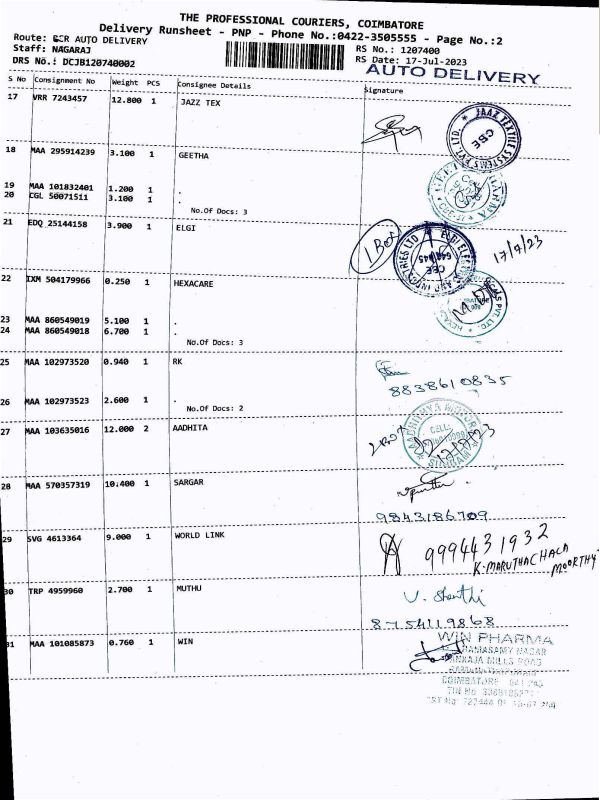 THE PROFESSIONAL COURIERS, COIMBATORE
Delivery Runsheet - PNP - Phone No.:0422-3505555 - Page No.:2
Route: AUTO DELIVERY
Staff: NAGARAJ
RS No.: 1207400
DRS No.: DCJB120740002
RS Date: 17-Jul-2023
AUTO DELIVERY
S No Consignment No Weight PCS Consignee Details Signature
17 VRR 7243457 12.800 1 JAZZ TEX
JAAZ TEXTILE SYSTEMS PVT. LTD. * CBE
18 MAA 295914239 3.100 1 GEETHA
19 MAA 101832401 1.200 1 .
20 CGL 50071511 3.100 1 .
No.Of Docs: 3
21 EDQ 25144158 3.900 1 ELGI
1 Box
17/7/23
22 IXM 504179966 0.250 1 HEXACARE
23 MAA 860549019 5.100 1 .
24 MAA 860549018 6.700 1 .
No.Of Docs: 3
25 MAA 102973520 0.940 1 RK
8838610835
26 MAA 102973523 2.600 1 .
No.Of Docs: 2
27 MAA 103635016 12.000 2 AADHITA
28 MAA 570357319 10.400 1 SARGAR
9843186709
29 SVG 4613364 9.000 1 WORLD LINK
9994431932
K. MARUTHACHALA
MOORTHY
30 TRP 4959960 2.700 1 MUTHU
V. Shanthi
8754119868
31 MAA 101085873 0.760 1 WIN
WIN PHARMA
RAMASAMY NAGAR
MILLS ROAD
COIMBATORE